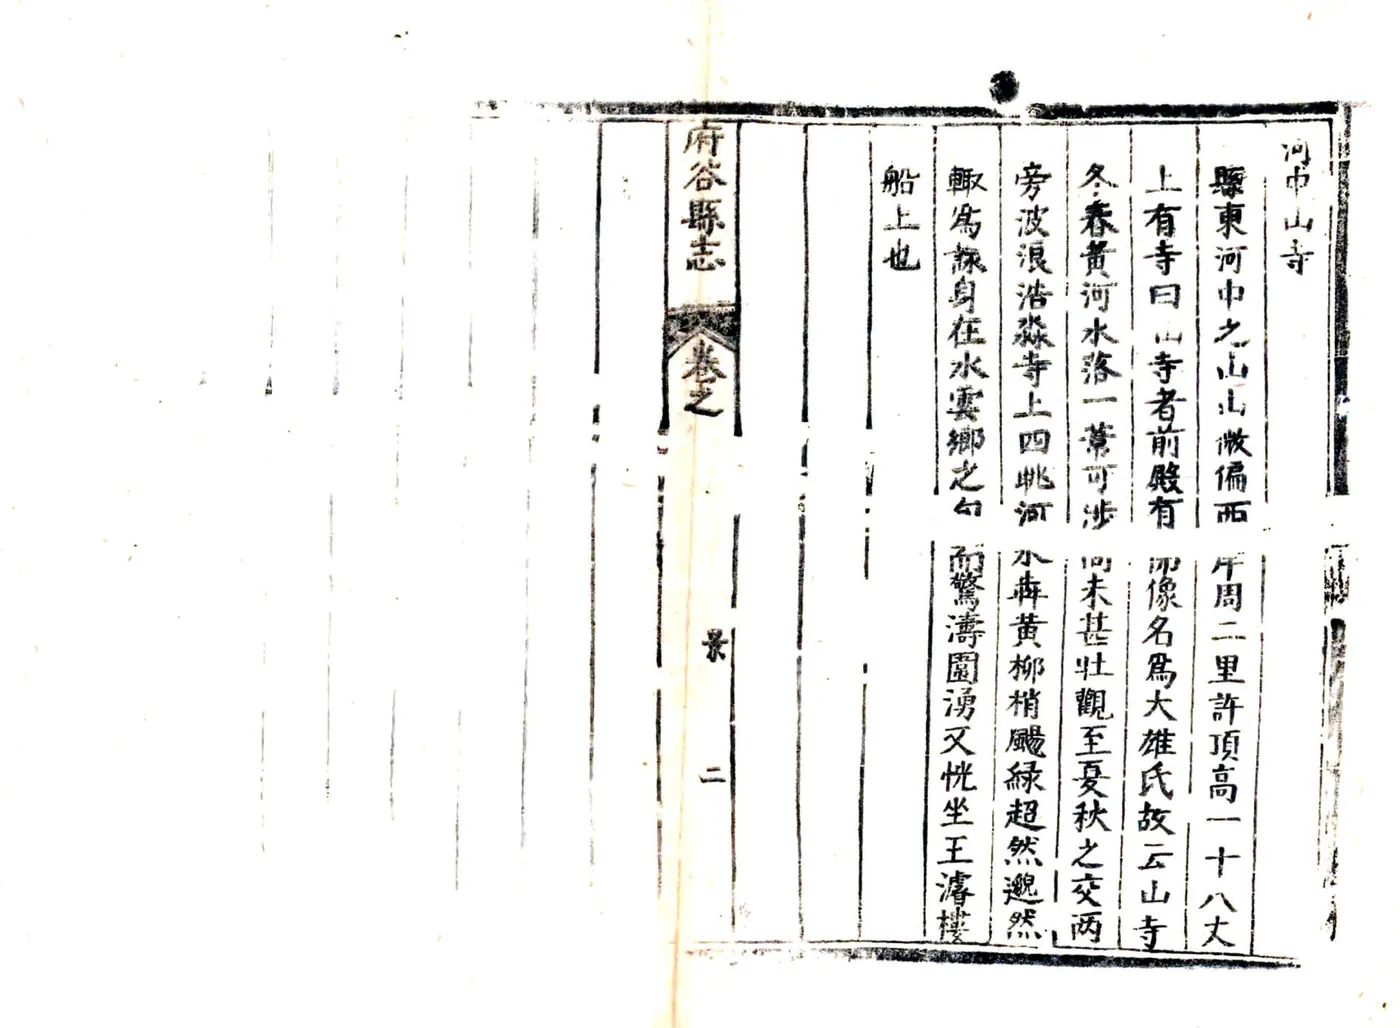 河中山寺
縣東河中之山山微偏西岸周二里許頂高一十八丈
上有寺曰山寺者前殿有佛像名爲大雄氏故云山寺
冬春黃河水落一葦可涉尚未甚壯觀至夏秋之交两
旁波浪浩淼寺上四眺河水犇黄柳梢颺緑超然邈然
輙爲詠身在水雲鄉之句而驚濤圍湧又恍坐王濬樓
船上也
府谷縣志
卷之
景
二